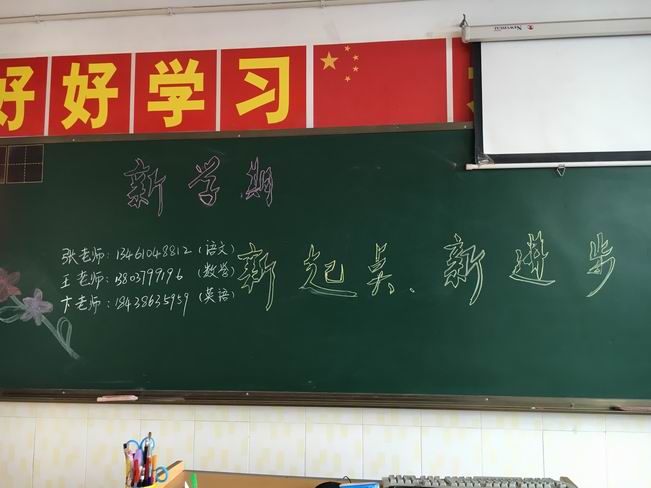 好好学习
新学期
张老师：13461048812（语文）
王老师：13803799196（数学）
卞老师：18438635959（英语）
新起点、新进步